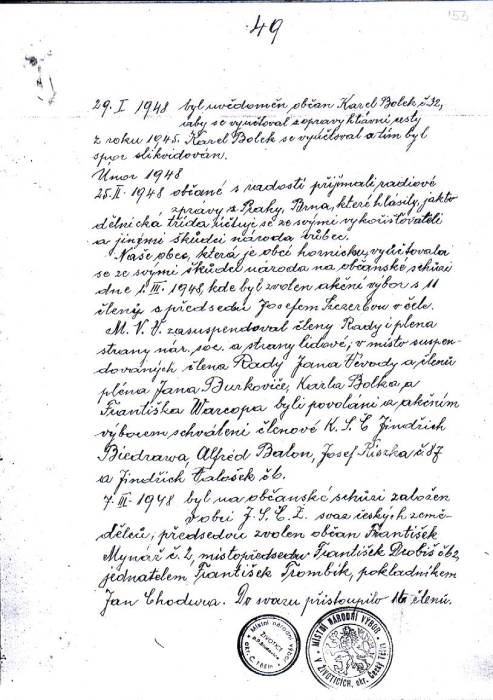 49
153
29. I 1948 byl uvědoměn občan Karel Bolek č. 32,
aby se vyúčtoval z opravy hlavní cesty
z roku 1945. Karel Bolek se vyúčtoval a tím byl
spor slikvidován.
Únor 1948
25. II. 1948 občané s radostí přijmali radiové
zprávy z Prahy, Brna, které hlásily, jak to
dělnická třída účtuje se svými vykořisťovateli
a jinými škůdci národa vůbec.
Naše obec, která je obcí hornickou, vyúčtovala
se se svými škůdci národa na občanské schůzi
dne 1. III. 1948, kde byl zvolen akční výbor s 11
členy s předsedou Josefem Szczerbou v čele.
M. N. V. zasuspendoval členy Rady i plena
strany nár. soc. a strany lidové; v místo suspen-
dovaných člena Rady Jana Vévody a členů
pléna Jana Burkoviče, Karla Bolka, a
Františka Warcopa byli povoláni a akčním
výborem schváleni členové K. S. Č Jindřich
Biedrawa, Alfréd Balon, Josef Kiszka č. 87
a Jindřich Galošek č 6.
7. III. 1948 byl na občanské schůzi založen
v obci J. S. Č. Z. svaz českých země-
dělců; předsedou zvolen občan František
Mynář č. 2, místopředsedou František Drobiš č. 62,
jednatelem František Trombik, pokladníkem
Jan Chodura. Do svazu přistoupilo 16 členů.
Místní národní výbor
ŽIVOTICE
okr. Č. Těšín
MÍSTNÍ NÁRODNÍ VÝBOR
V ŽIVOTICÍCH, okr. Český Těšín